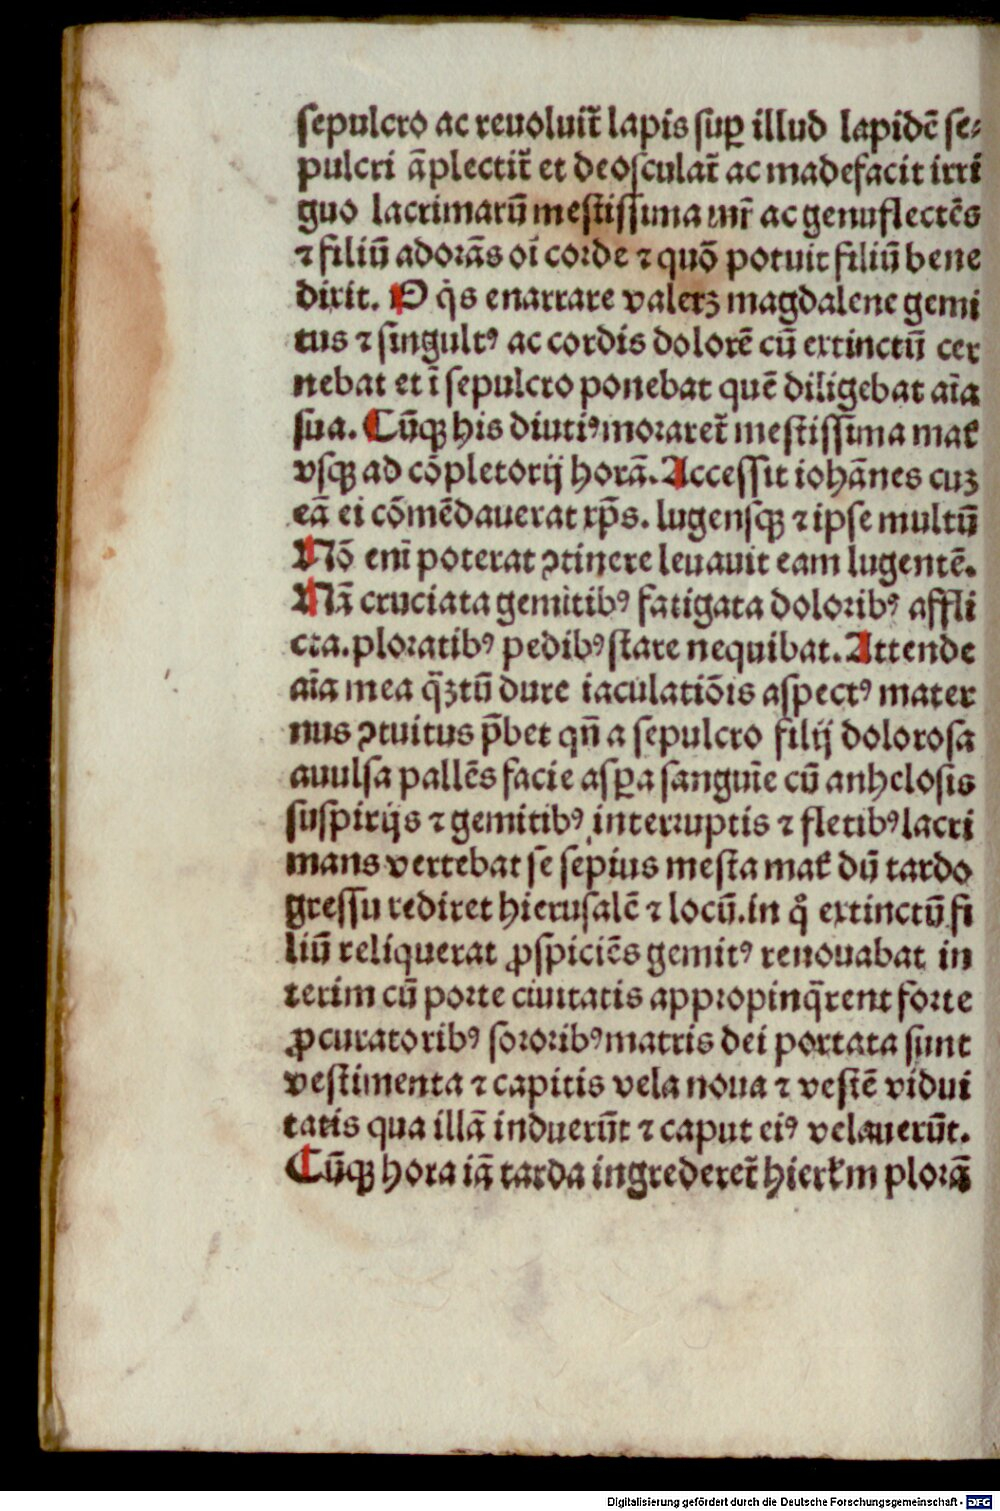 sepulcro ac reuoluit᷑ lapis suꝑ illud lapidē se⸗
pulcri āplectit᷑ et deosculat᷑ ac madefacit irri
guo lacrimarū mestissima mr̄ ac genuflectēs
⁊ filiū adorās oī corde ⁊ quō potuit filiū bene
dixit. O q̇s enarrare valerꝫ magdalene gemi
tus ⁊ singultꝰ ac cordis dolorē cū extinctū cer
nebat et ī sepulcro ponebat quē diligebat aīa
sua. Cūqꝫ his diutiꝰ moraret᷑ mestissima mat̄
vsqꝫ ad cōpletorij horā. Accessit iohānes cuꝫ
eā ei cōmēdauerat xp̄s. lugensqꝫ ⁊ ipse multū
Nō enī poterat ꝯtinere leuauit eam lugentē.
Nā cruciata gemitibꝰ fatigata doloribꝰ affli
cta. ploratibꝰ pedibꝰ stare nequibat. Attende
aīa mea q̄ꝫtū dure iaculatiōis aspectꝰ mater
nus ꝯtuitus p̄bet qn̄ a sepulcro filij dolorosa
auulsa pallēs facie asꝑa sanguīe cū anhelosis
suspirijs ⁊ gemitibꝰ interruptis ⁊ fletibꝰ lacri
mans vertebat se sepius mesta mat̄ dū tardo
gressu rediret hierusalē ⁊ locū. in q̊ extinctū fi
liū reliquerat ꝓspiciēs gemitꝰ renouabat in
terim cū porte ciuitatis appropinq̄rent forte
ꝓcuratoribꝰ sororibꝰ matris dei portata sunt
vestimenta ⁊ capitis vela noua ⁊ vestē vidui
tatis qua illā induerūt ⁊ caput eiꝰ velauerūt.
Cūqꝫ hora iā tarda ingrederet᷑ hierłm plorā
Digitalisierung gefördert durch die Deutsche Forschungsgemeinschaft - DFG